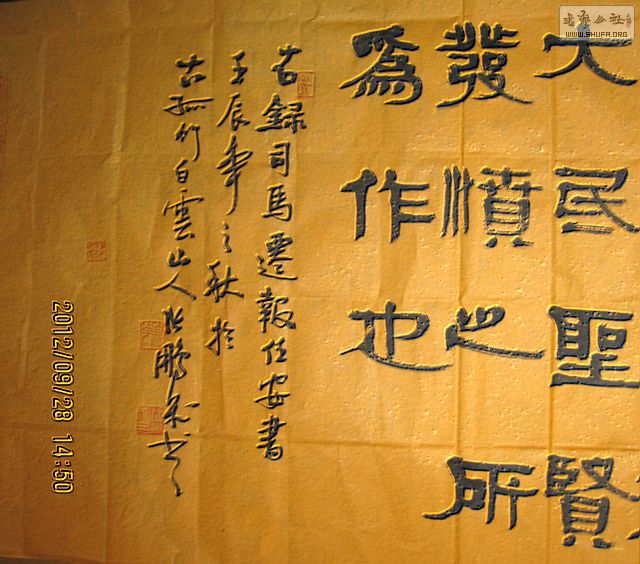 大民聖賢
發憤之所
爲作也
右録司馬遷報任安書
壬辰年之秋於
古孤竹白雲山人張鵬書
2012/09/28 14:50
书法公社
WWW.SHUFA.ORG